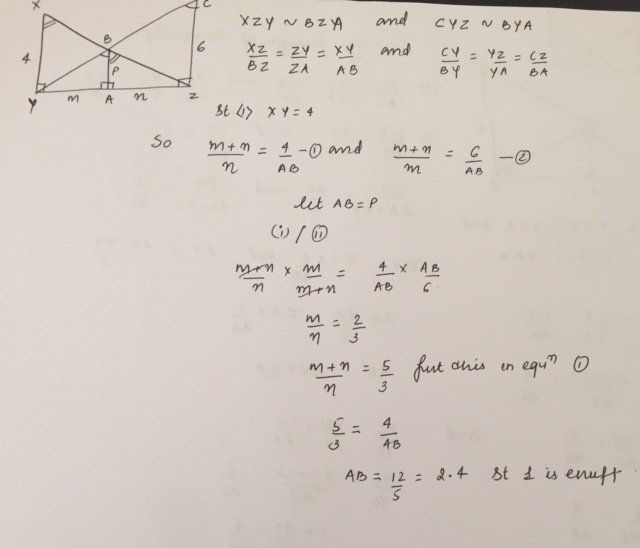 X
C
XZY ~ BZA and CYZ ~ BYA
B
4
P
6
XZ/BZ = ZY/ZA = XY/AB and CY/BY = YZ/YA = CZ/BA
Y m A n Z
St (1) XY = 4
So m+n/n = 4/AB – ① and m+n/m = 6/AB – ②
let AB = P
(i) / (ii)
m+n/n × m/m+n = 4/AB × AB/6
m/n = 2/3
m+n/n = 5/3 put this in equⁿ ①
5/3 = 4/AB
AB = 12/5 = 2.4 St 1 is enuft